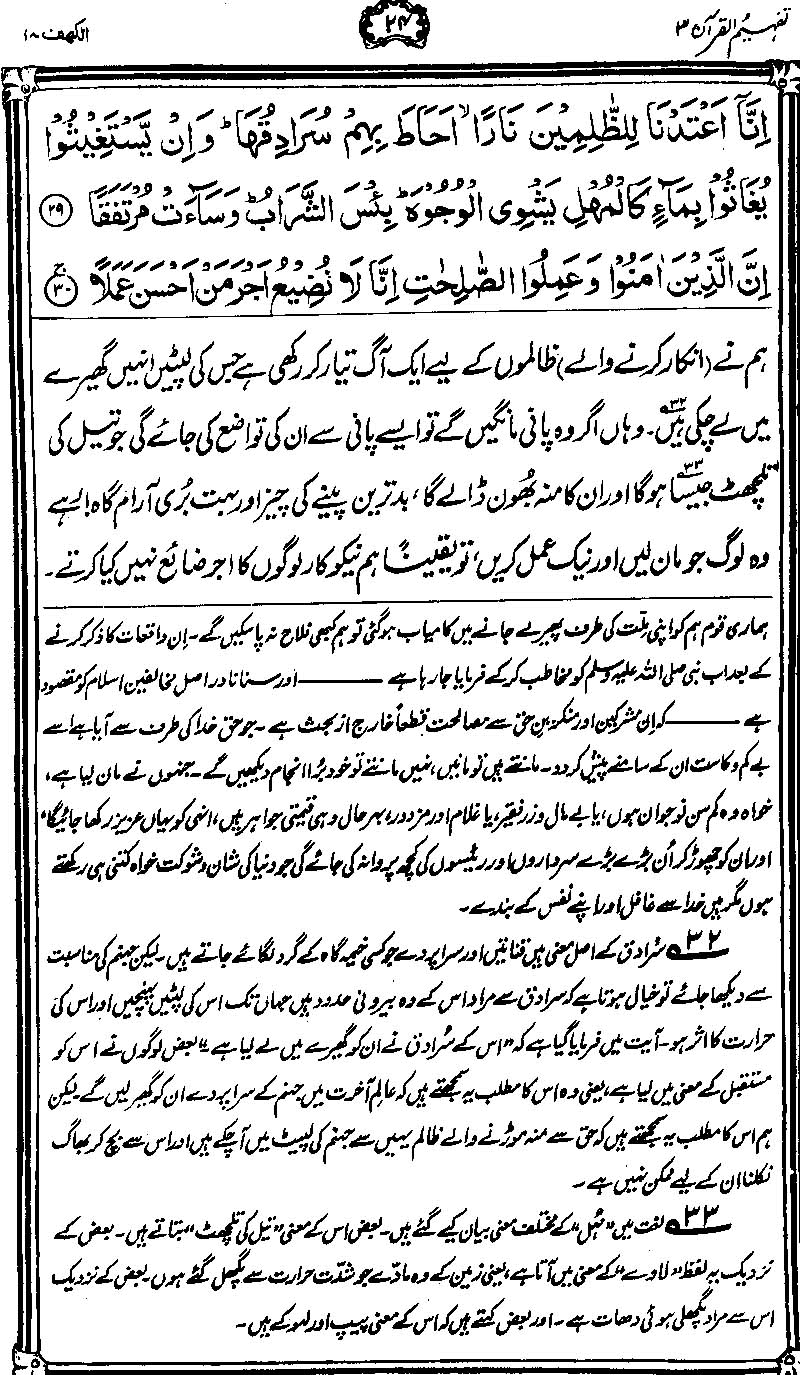 تفہیم القرآن ۳
۲۴
الکہف ۱۸
اِنَّآ اَعْتَدْنَا لِلظّٰلِمِیْنَ نَارًا ۙ اَحَاطَ بِهِمْ سُرَادِقُهَا ؕ وَ اِنْ یَّسْتَغِیْثُوْا
یُغَاثُوْا بِمَآءٍ كَالْمُهْلِ یَشْوِی الْوُجُوْهَ ؕ بِئْسَ الشَّرَابُ ؕ وَ سَآءَتْ مُرْتَفَقًا ﴿۲۹﴾
اِنَّ الَّذِیْنَ اٰمَنُوْا وَ عَمِلُوا الصّٰلِحٰتِ اِنَّا لَا نُضِیْعُ اَجْرَ مَنْ اَحْسَنَ عَمَلًا ۚ ﴿۳۰﴾
ہم نے (انکار کرنے والے) ظالموں کے لیے ایک آگ تیار کر رکھی ہے جس کی لپٹیں انہیں گھیرے
میں لے چکی ہیں۳۲۔ وہاں اگر وہ پانی مانگیں گے تو ایسے پانی سے ان کی تواضع کی جائے گی جو تیل کی
تلچھٹ جیسا۳۳ ہوگا اور ان کا منہ بھون ڈالے گا، بدترین پینے کی چیز اور بہت بُری آرام گاہ! رہے
وہ لوگ جو مان لیں اور نیک عمل کریں، تو یقیناً ہم نیکوکار لوگوں کا اجر ضائع نہیں کیا کرتے۔
ہماری قوم ہم کو اپنی ملت کی طرف پھیر لے جانے میں کامیاب ہوگئی تو ہم کبھی فلاح نہ پا سکیں گے۔ اِن واقعات کا ذکر کرنے
کے بعد اب نبی صلی اللہ علیہ وسلم کو مخاطب کر کے فرمایا جا رہا ہے ——— اور سنانا دراصل مخالفین اسلام کو مقصود
ہے ——— کہ اِن مشرکین اور منکرینِ حق سے مصالحت قطعاً خارج از بحث ہے۔ جو حق خدا کی طرف سے آیا ہے اسے
بے کم و کاست ان کے سامنے پیش کر دو۔ مانتے ہیں تو مانیں، نہیں مانتے تو خود بُرا انجام دیکھیں گے۔ جنہوں نے مان لیا ہے،
خواہ وہ کم سن نوجوان ہوں، یا بے مال و زر فقیر، یا غلام اور مزدور، بہرحال وہی قیمتی جواہر ہیں، انہی کو یہاں عزیز رکھا جائیگا،
اور ان کو چھوڑ کر اُن بڑے بڑے سرداروں اور رئیسوں کی کچھ پروا نہ کی جائے گی جو دنیا کی شان و شوکت خواہ کتنی ہی رکھتے
ہوں مگر ہیں خدا سے غافل اور اپنے نفس کے بندے۔
۳۲ سُرادق کے اصل معنی ہیں قناتیں اور سراپردے جو کسی خیمہ گاہ کے گرد لگائے جاتے ہیں۔ لیکن جہنم کی مناسبت
سے دیکھا جائے تو خیال ہوتا ہے کہ سرادق سے مراد اس کے وہ بیرونی حدود ہیں جہاں تک اس کی لپٹیں پہنچیں اور اس کی
حرارت کا اثر ہو۔ آیت میں فرمایا گیا ہے کہ ”اس کے سُرادق نے ان کو گھیرے میں لے لیا ہے“۔ بعض لوگوں نے اس کو
مستقبل کے معنی میں لیا ہے، یعنی وہ اس کا مطلب یہ سمجھتے ہیں کہ عالمِ آخرت میں جہنم کے سراپردے ان کو گھیر لیں گے۔ لیکن
ہم اس کا مطلب یہ سمجھتے ہیں کہ حق سے منہ موڑنے والے ظالم یہیں سے جہنم کی لپیٹ میں آچکے ہیں اور اس سے بچ کر بھاگ
نکلنا ان کے لیے ممکن نہیں ہے۔
۳۳ لغت میں ”مُہل“ کے مختلف معنی بیان کیے گئے ہیں۔ بعض اس کے معنی ”تیل کی تلچھٹ“ بتاتے ہیں۔ بعض کے
نزدیک یہ لفظ ”لاوے“ کے معنی میں آتا ہے، یعنی زمین کے وہ مادّے جو شدّت حرارت سے پگھل گئے ہوں۔ بعض کے نزدیک
اس سے مراد پگھلی ہوئی دھات ہے۔ اور بعض کہتے ہیں کہ اس کے معنی پیپ اور لہو کے ہیں۔